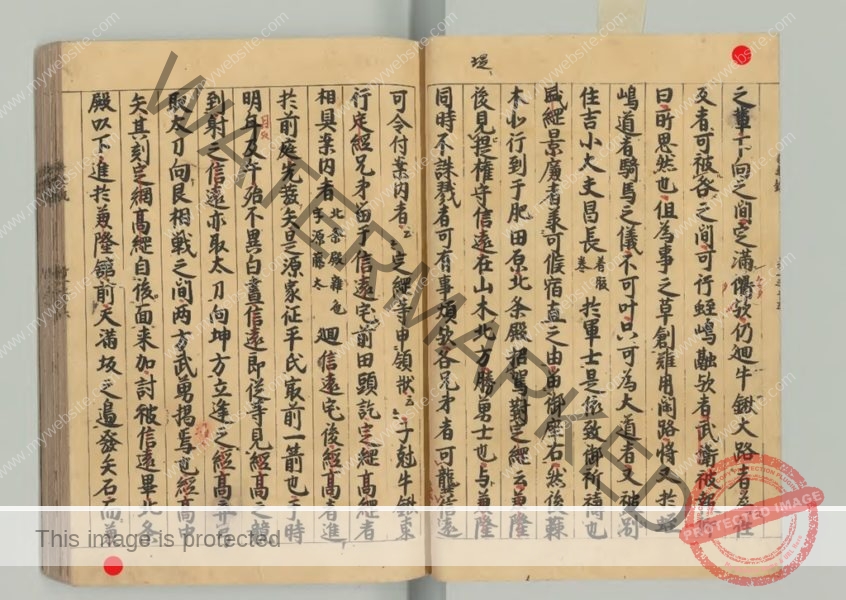 堤
之輩下向之間定満衢欤仍廻牛鍬大路者為往
反者可被咎之間可行蛭嶋融欤者武衛被報
曰所思然也但為事之草創難用閑路将又於蛭
嶋道者騎馬之儀不可叶只可為大道者又被副
住吉小大夫昌長着腹巻於軍士是依致御祈禱也
盛綱景廉者承可候宿直之由留御座右然後蕀
木北行到于肥田原北条殿扣駕對定綱云兼隆
後見堤権守信遠在山木北方勝勇士也与兼隆
同時不誅戮者可有事煩欤各兄弟者可襲信遠
可令付案内者云々定綱等申領状云々子剋牛鍬東
行定綱兄弟留于信遠宅前田頭訖定綱高綱者
相具案内者北条殿雑色字源藤太廻信遠宅後經高者進
於前庭先發矢是源家征平氏最前一箭也于時
明月及午殆不異白晝信遠郎従等見經高之競
到射之信遠亦取太刀向坤方立逢之經高弃
取太刀向艮相戦之間両方武勇掲焉也經高
矢其刻定綱高綱自後面来加討被信遠畢北条
殿以下進於兼隆館前天満坂之邊發矢石而兼
WATERMARKED
This image is protected
www.mywebsite.com
PROTECTED IMAGE